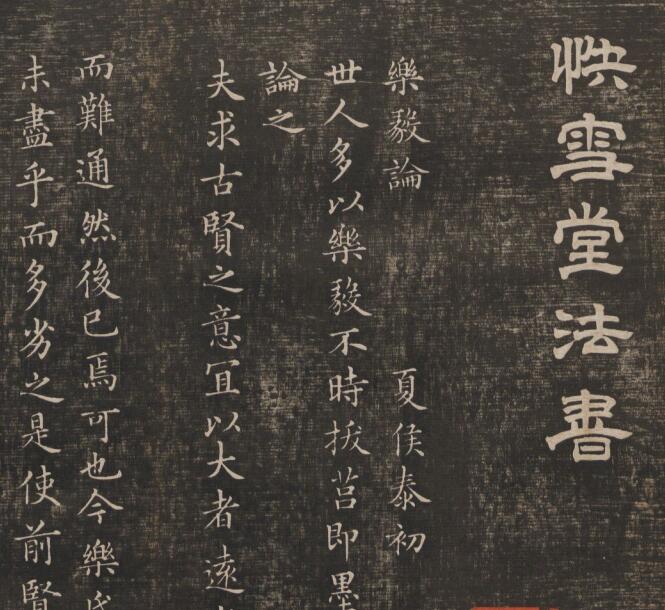 快雪堂法書
樂毅論 夏侯泰初
世人多以樂毅不時拔莒即墨
論之
夫求古賢之意宜以大者遠
而難通然後已焉可也今樂氏
未盡乎而多劣之是使前賢